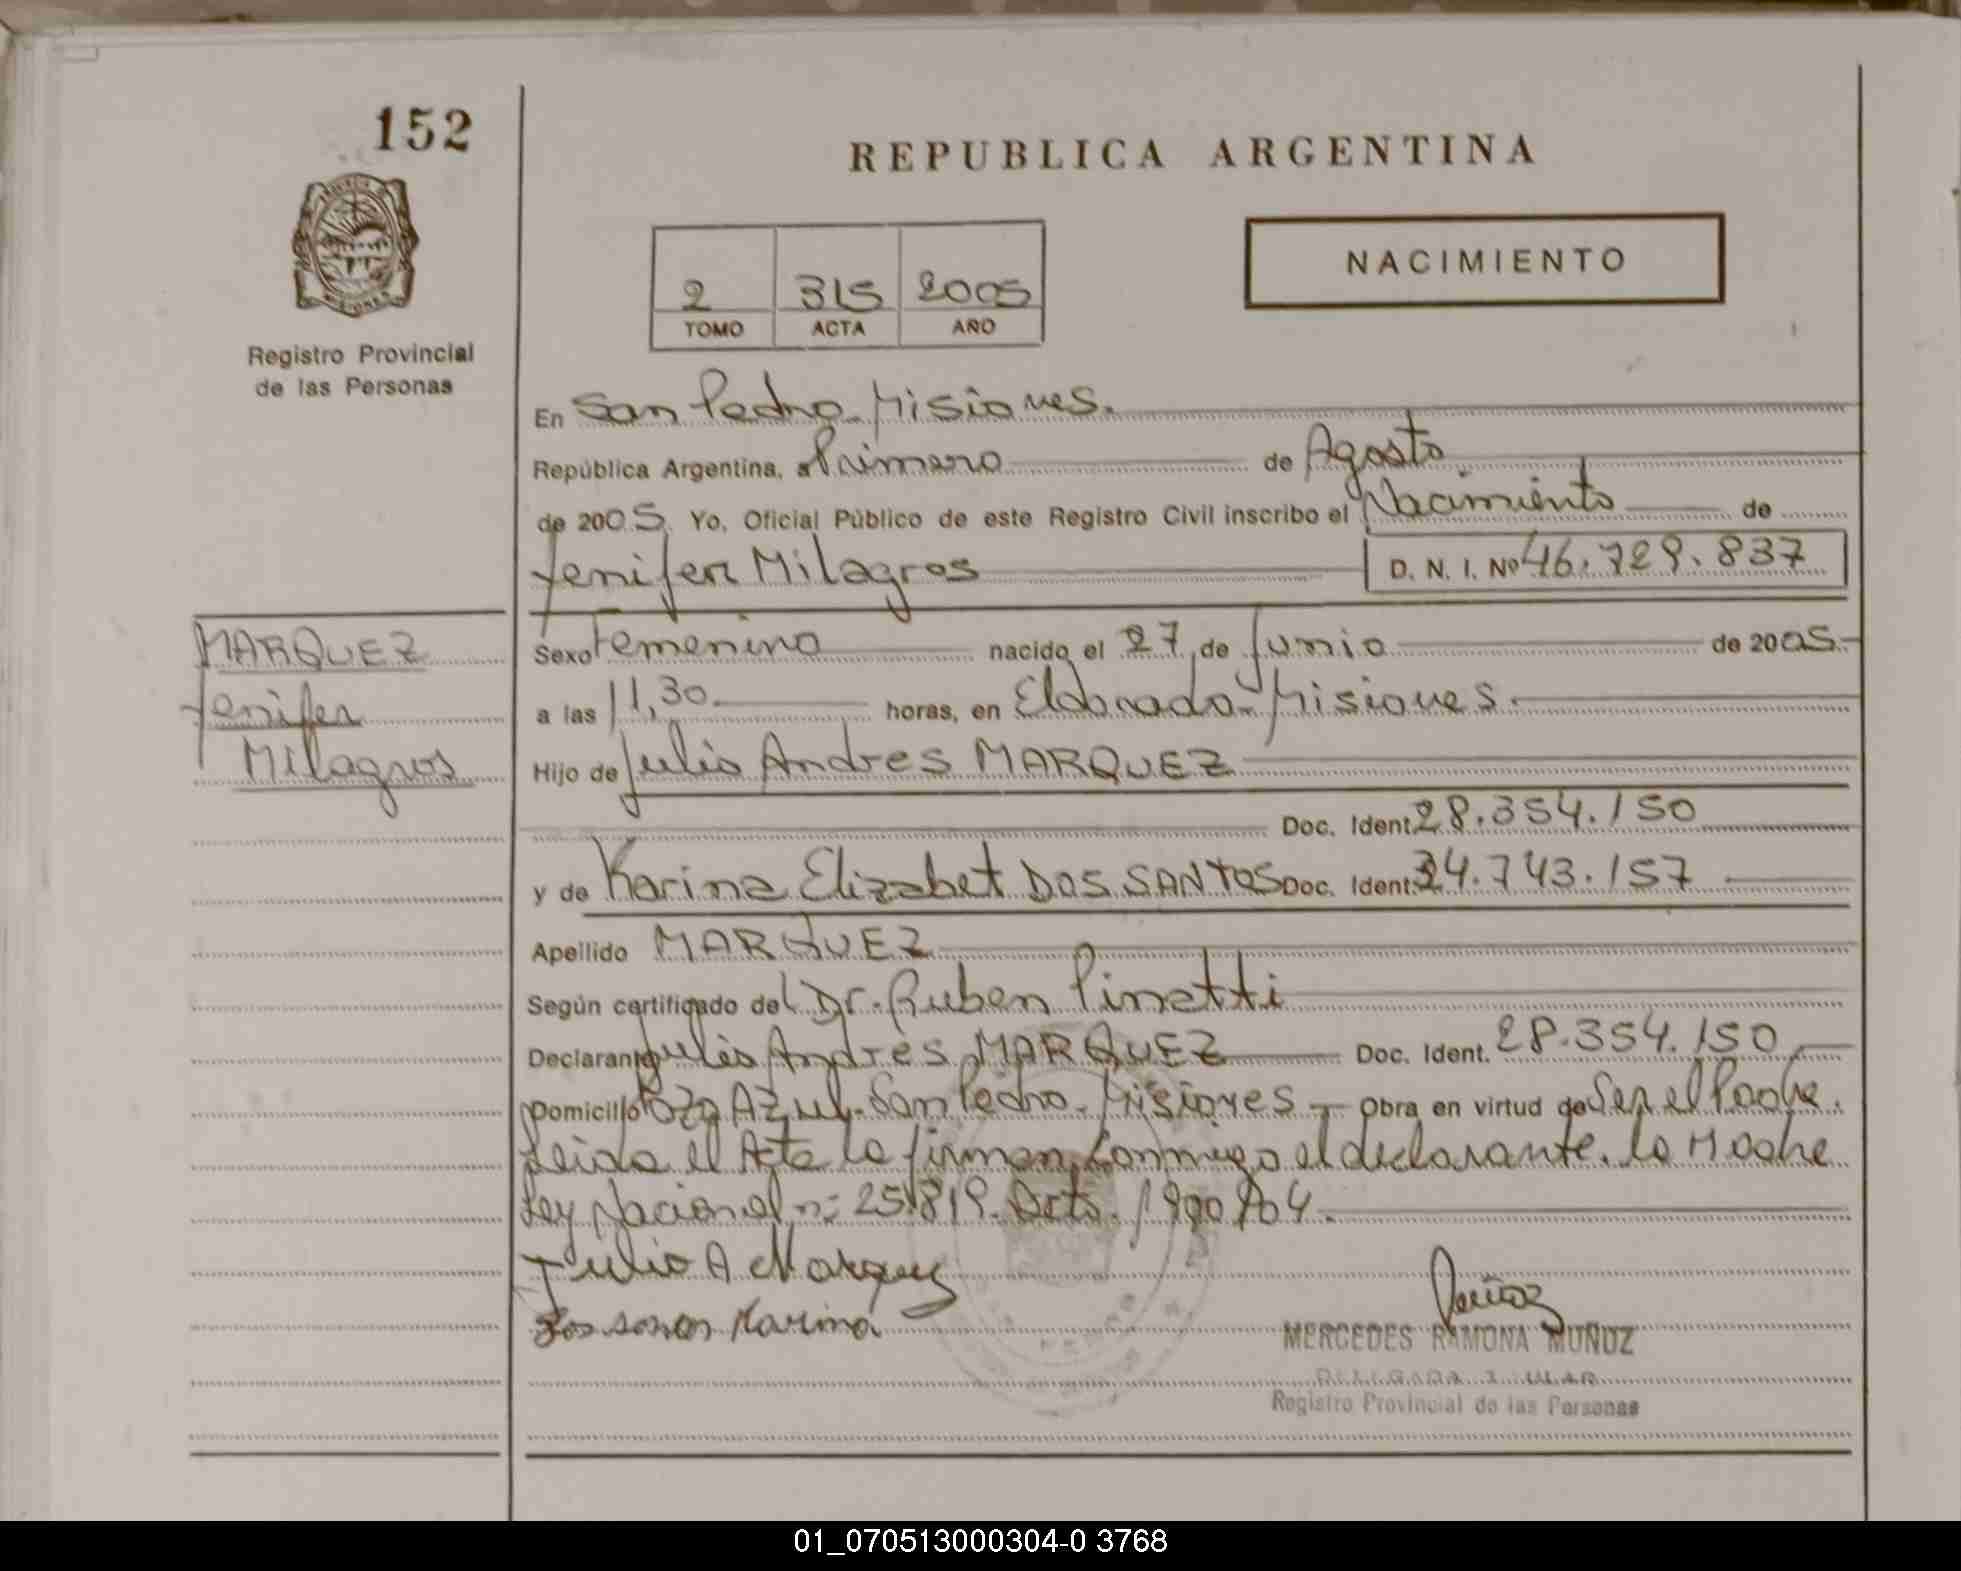 152
REPUBLICA ARGENTINA
NACIMIENTO
2 315 2005
TOMO ACTA AÑO
Registro Provincial
de las Personas
En San Pedro. Misiones.
República Argentina, a Primero de Agosto
de 2005 Yo, Oficial Público de este Registro Civil inscribo el Nacimiento de
Jenifer Milagros D. N. I. Nº 46.729.837
MARQUEZ
Jenifer
Milagros
Sexo Femenino nacido el 27 de Junio de 2005
a las 11,30 horas, en Eldorado - Misiones.
Hijo de Julio Andres MARQUEZ
Doc. Ident. 28.354.150
y de Karina Elizabet DOS SANTOS Doc. Ident. 34.743.157
Apellido MARQUEZ
Según certificado del Dr. Ruben Pinatti
Declarante Julio Andres MARQUEZ Doc. Ident. 28.354.150
Domicilio Pozo Azul. San Pedro. Misiones Obra en virtud de Ser el Padre.
Leida el Acta la firman conmigo el declarante. la Madre
Ley Nacional nº 25.819. Dcto. 1900/04.
Julio A Marquez
Dos santos Karina
MERCEDES RAMONA MUÑOZ
Registro Provincial de las Personas
01_070513000304-0 3768